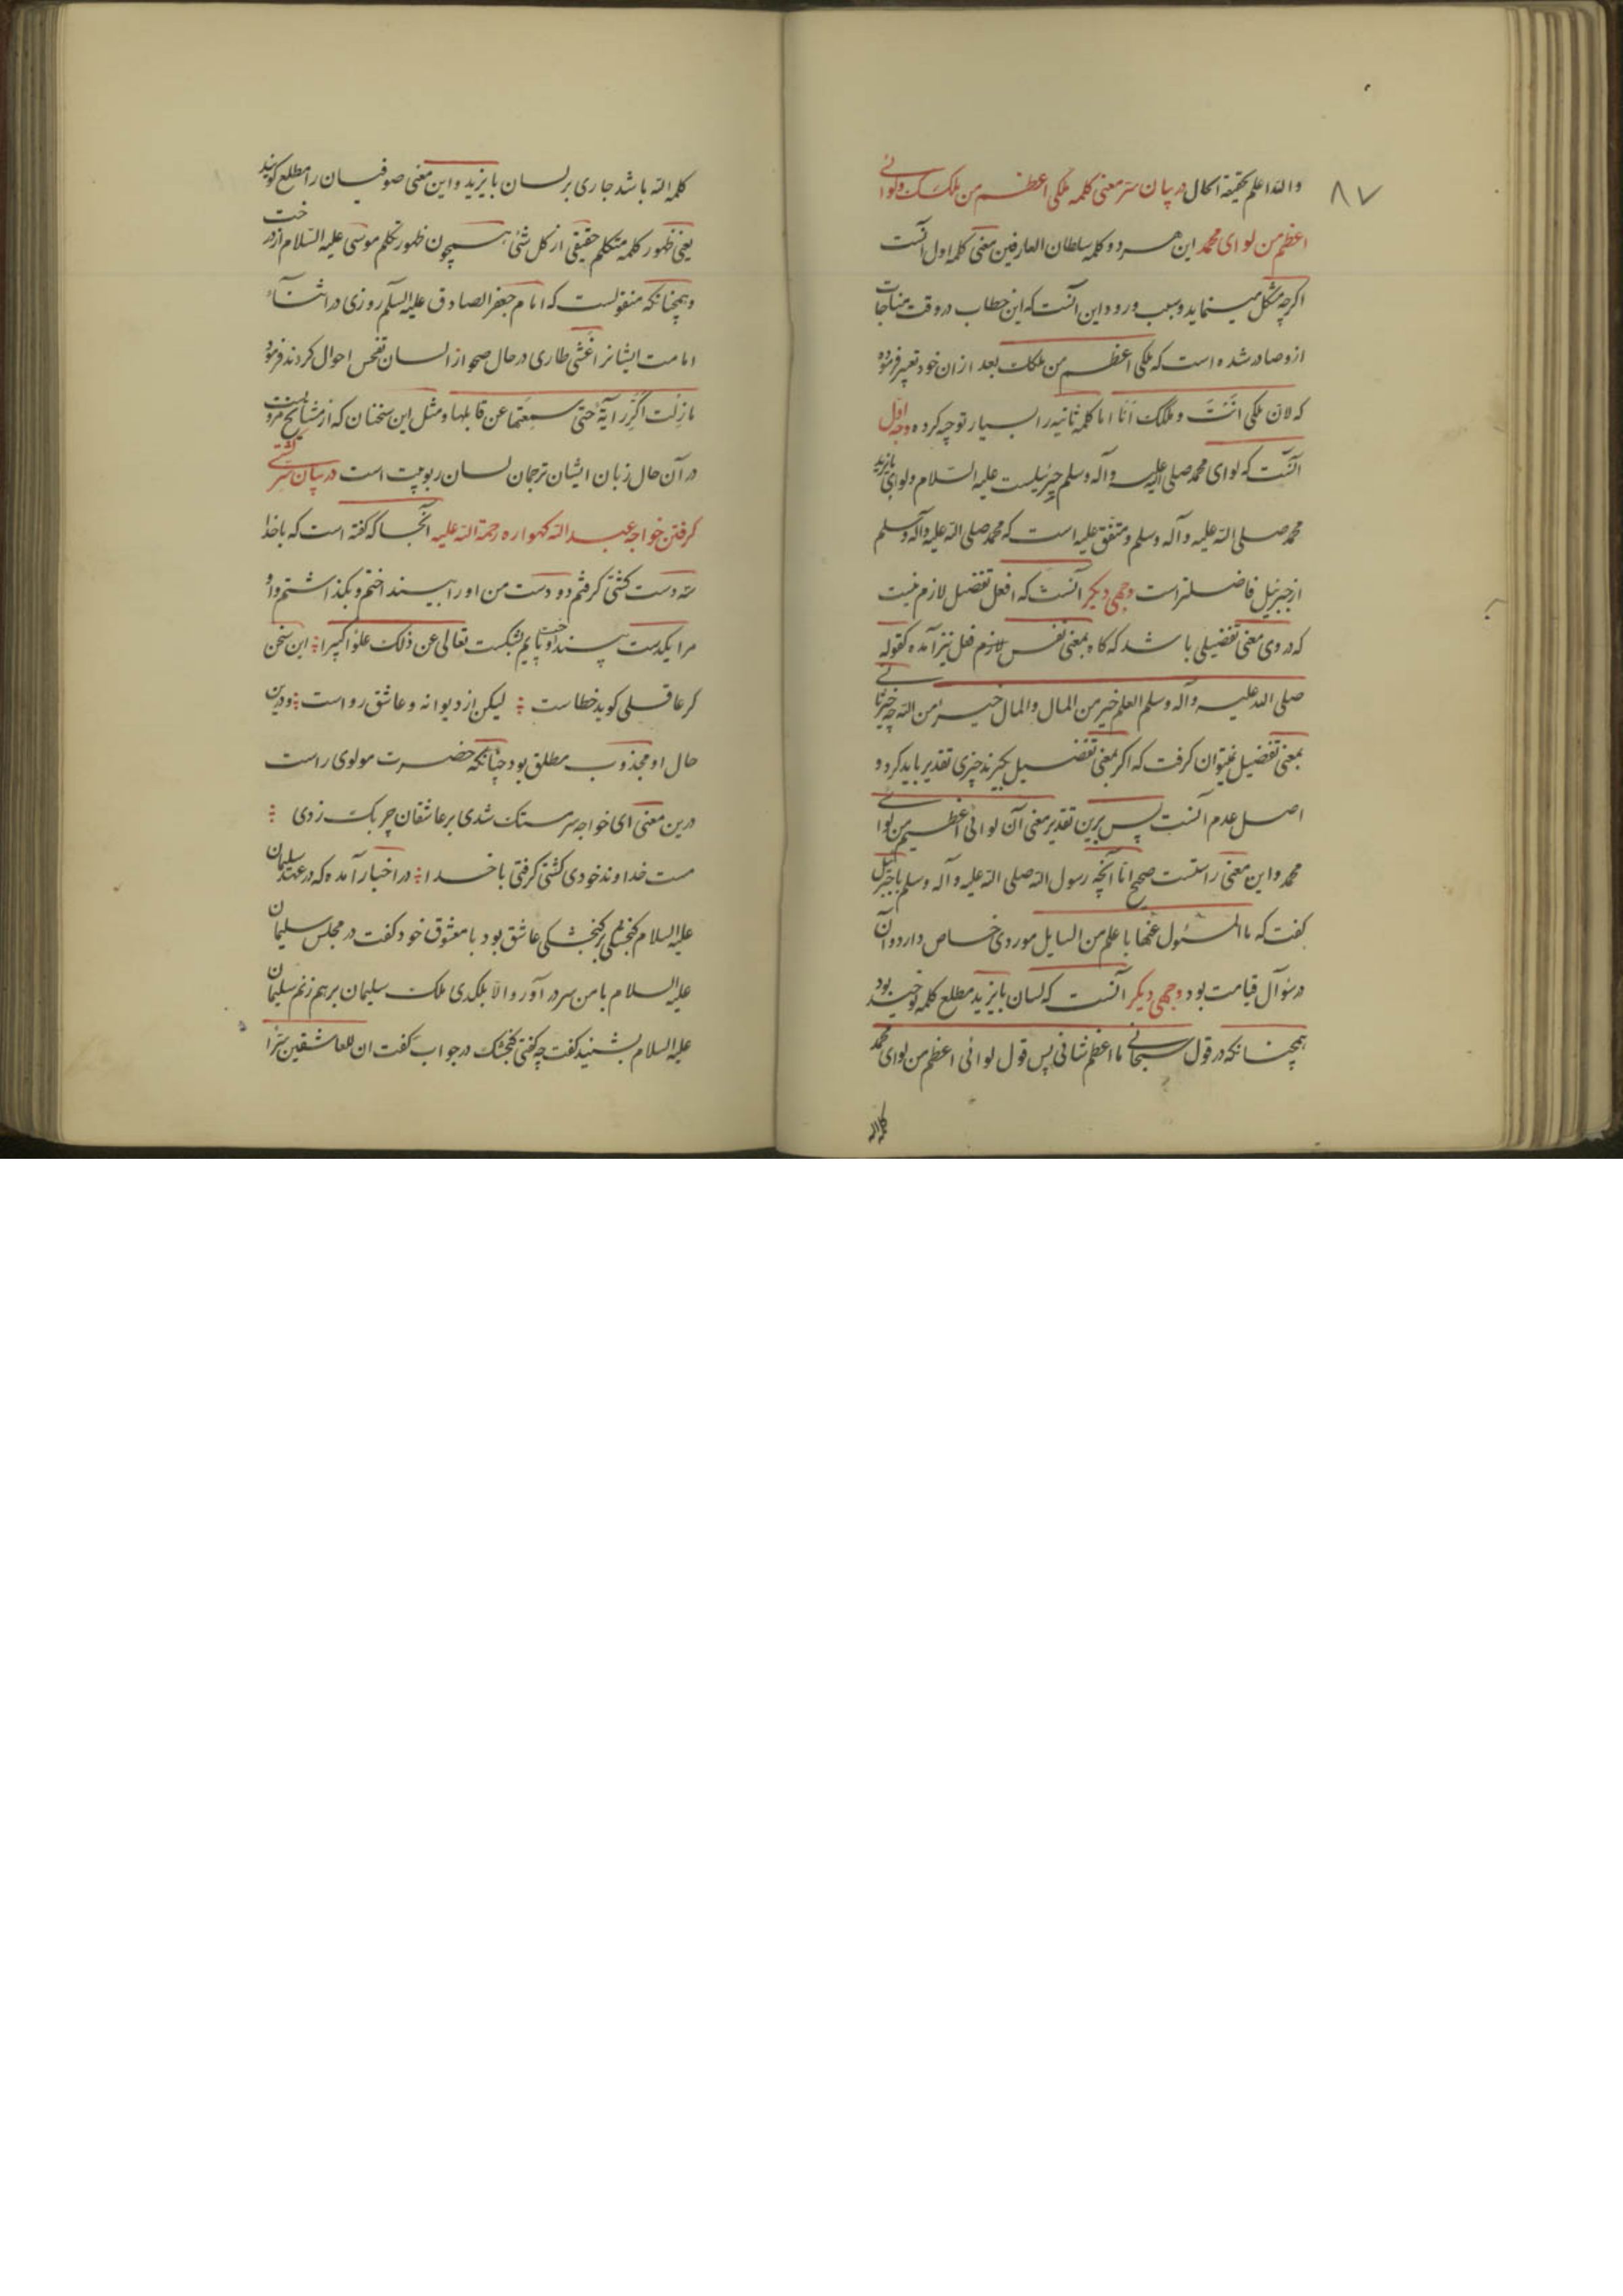 ۸۷
والله اعلم بحقیقة الحال در بیان سر معنی کلمه ملکی اعظم من ملکک و لوائی
اعظم من لوای محمد این هر دو کلمه سلطان العارفین معنی کلمه اول آنست
اگرچه مشکل مینماید و سبب ورود این آنست که این خطاب در وقت مناجات
ازو صادر شده است که ملکی اعظم من ملکک بعد از ان خود تعبیر فرموده
که لان ملکی انت و ملکک انا اما کلمه ثانیه را بسیار توجیه کرده وجه اول
آنست که لوای محمد صلی الله علیه وآله وسلم جبرئیلست علیه السلام و لوای بایزید
محمد صلی الله علیه وآله وسلم و متفق علیه است که محمد صلی الله علیه وآله وسلم
از جبرئیل فاضلتر است وجهی دیگر آنست که افعل تفضیل لازم نیست
که در وی معنی تفضیلی باشد که گاه بمعنی نفس لازم فعل نیز آمده کقوله
صلی الله علیه وآله وسلم العلم خیر من المال والمال خیر من الله چه خیر ثانی
بمعنی تفضیل نمیتوان گرفت که اگر بمعنی تفضیل گیرند چیزی تقدیر باید کرد و
اصل عدم آنست پس برین تقدیر معنی آن لوائی اعظم من لوای
محمد و این معنی راستست صحیح اما آنچه رسول الله صلی الله علیه وآله وسلم با جبرئیل
گفت که ما المسئول عنها باعلم من السایل موردی خاص دارد و آن
در سؤال قیامت بود وجهی دیگر آنست که لسان بایزید مطلع کلمه توحید بود
همچنانکه در قول سبحانی ما اعظم شانی پس قول لوائی اعظم من لوای محمد
کلمه الله
کلمه الله باشد جاری بر لسان بایزید و این معنی صوفیان را مطلع گویند
یعنی ظهور کلمه متکلم حقیقی از کل شئ همچون ظهور تکلم موسی علیه السلام از درخت
و همچنانکه منقولست که امام جعفر الصادق علیه السلم روزی در اثناء
امامت ایشانرا غشی طاری در حال صحو از لسان تفحص احوال کردند فرمود
ما زلت اکرر آیة حتی سمعتها عن قایلها و مثل این سخنان که از مشایخ مرویست
در آن حال زبان ایشان ترجمان لسان ربوبیت است در بیان سر کشتی
گرفتن خواجه عبد الله گهواره رحمة الله علیه آنجا که گفته است که با خدا
سه دست کشتی گرفتم دو دست من او را بینداختم و بگذاشتم و او
مرا یکدست بینداخت و پایم بشکست تعالی عن ذلک علوا کبیرا این سخن
گر عاقلی گوید خطاست لیکن از دیوانه و عاشق رواست و درین
حال او مجذوب مطلق بود چنانکه حضرت مولوی راست
درین معنی ای خواجه سرمستک شدی بر عاشقان چربک زدی
مست خداوند خودی کشتی گرفتی با خدا در اخبار آمده که در عهد سلیمان
علیه السلام گنجشکی بر گنجشکی عاشق بود با معشوق خود گفت در مجلس سلیمان
علیه السلام با من سر در آور والا بلکدی ملکت سلیمان برهم زنم سلیمان
علیه السلام بشنید گفت چه گفتی گنجشک در جواب گفت ان للعاشقین سرا